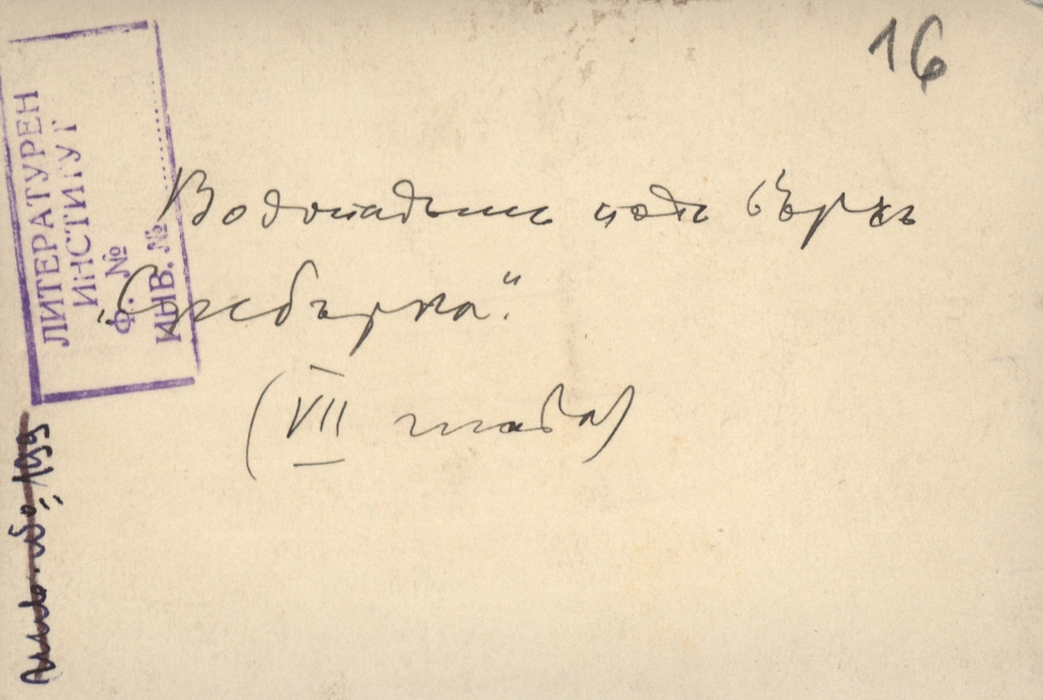 16
ЛИТЕРАТУРЕН
ИНСТИТУТ
Ф. №
ИНВ. №
Водопадътъ подъ връхъ
(VII глава)